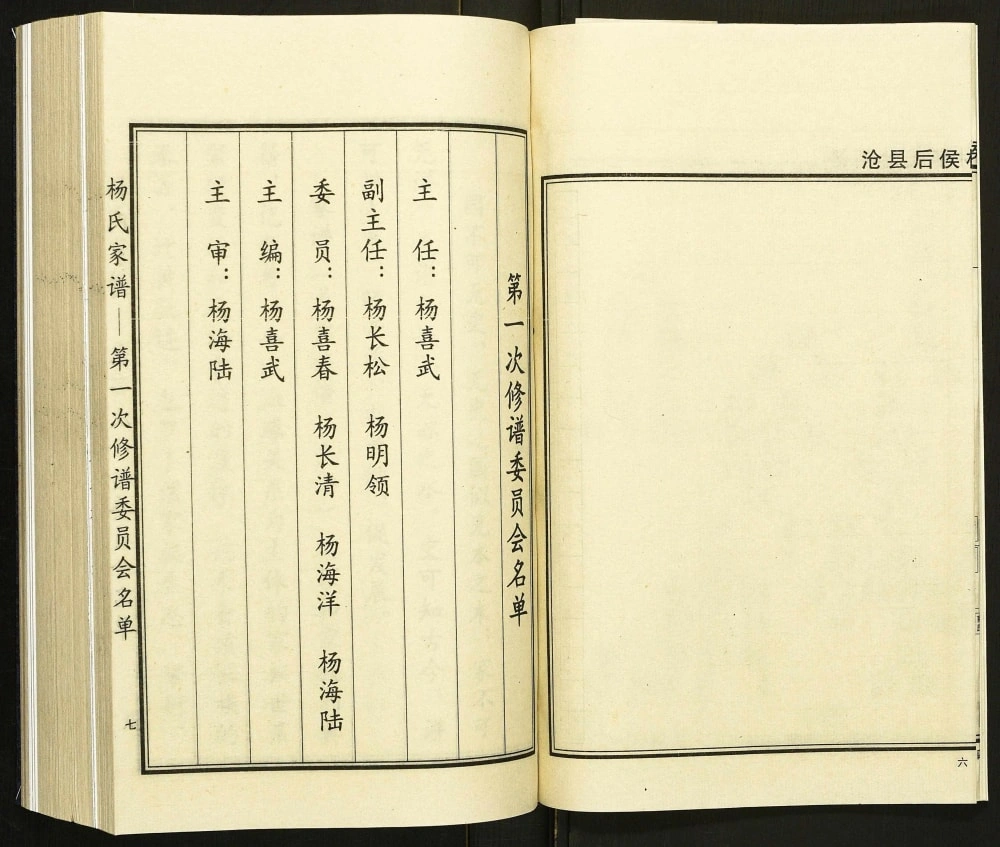 沧县后侯
六
第一次修谱委员会名单
主 任：杨喜武
副主任：杨长松 杨明领
委 员：杨喜春 杨长清 杨海洋 杨海陆
主 编：杨喜武
主 审：杨海陆
杨氏家谱—第一次修谱委员会名单
七